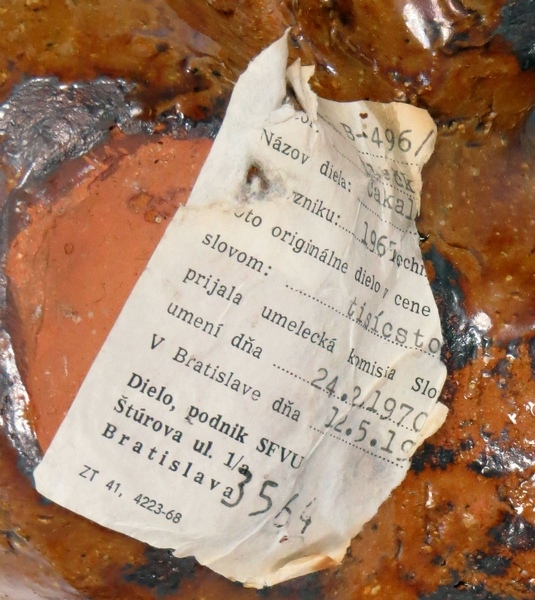 B-496/
Názov diela:
vzniku: 1965 techn
toto originálne dielo v cene
slovom: tisícsto
prijala umelecká komisia Slo
umení dňa 24.2.1970
V Bratislave dňa 12.5.19
Dielo, podnik SFVU
Štúrova ul. 1/a
Bratislava
3564
ZT 41, 4223-68